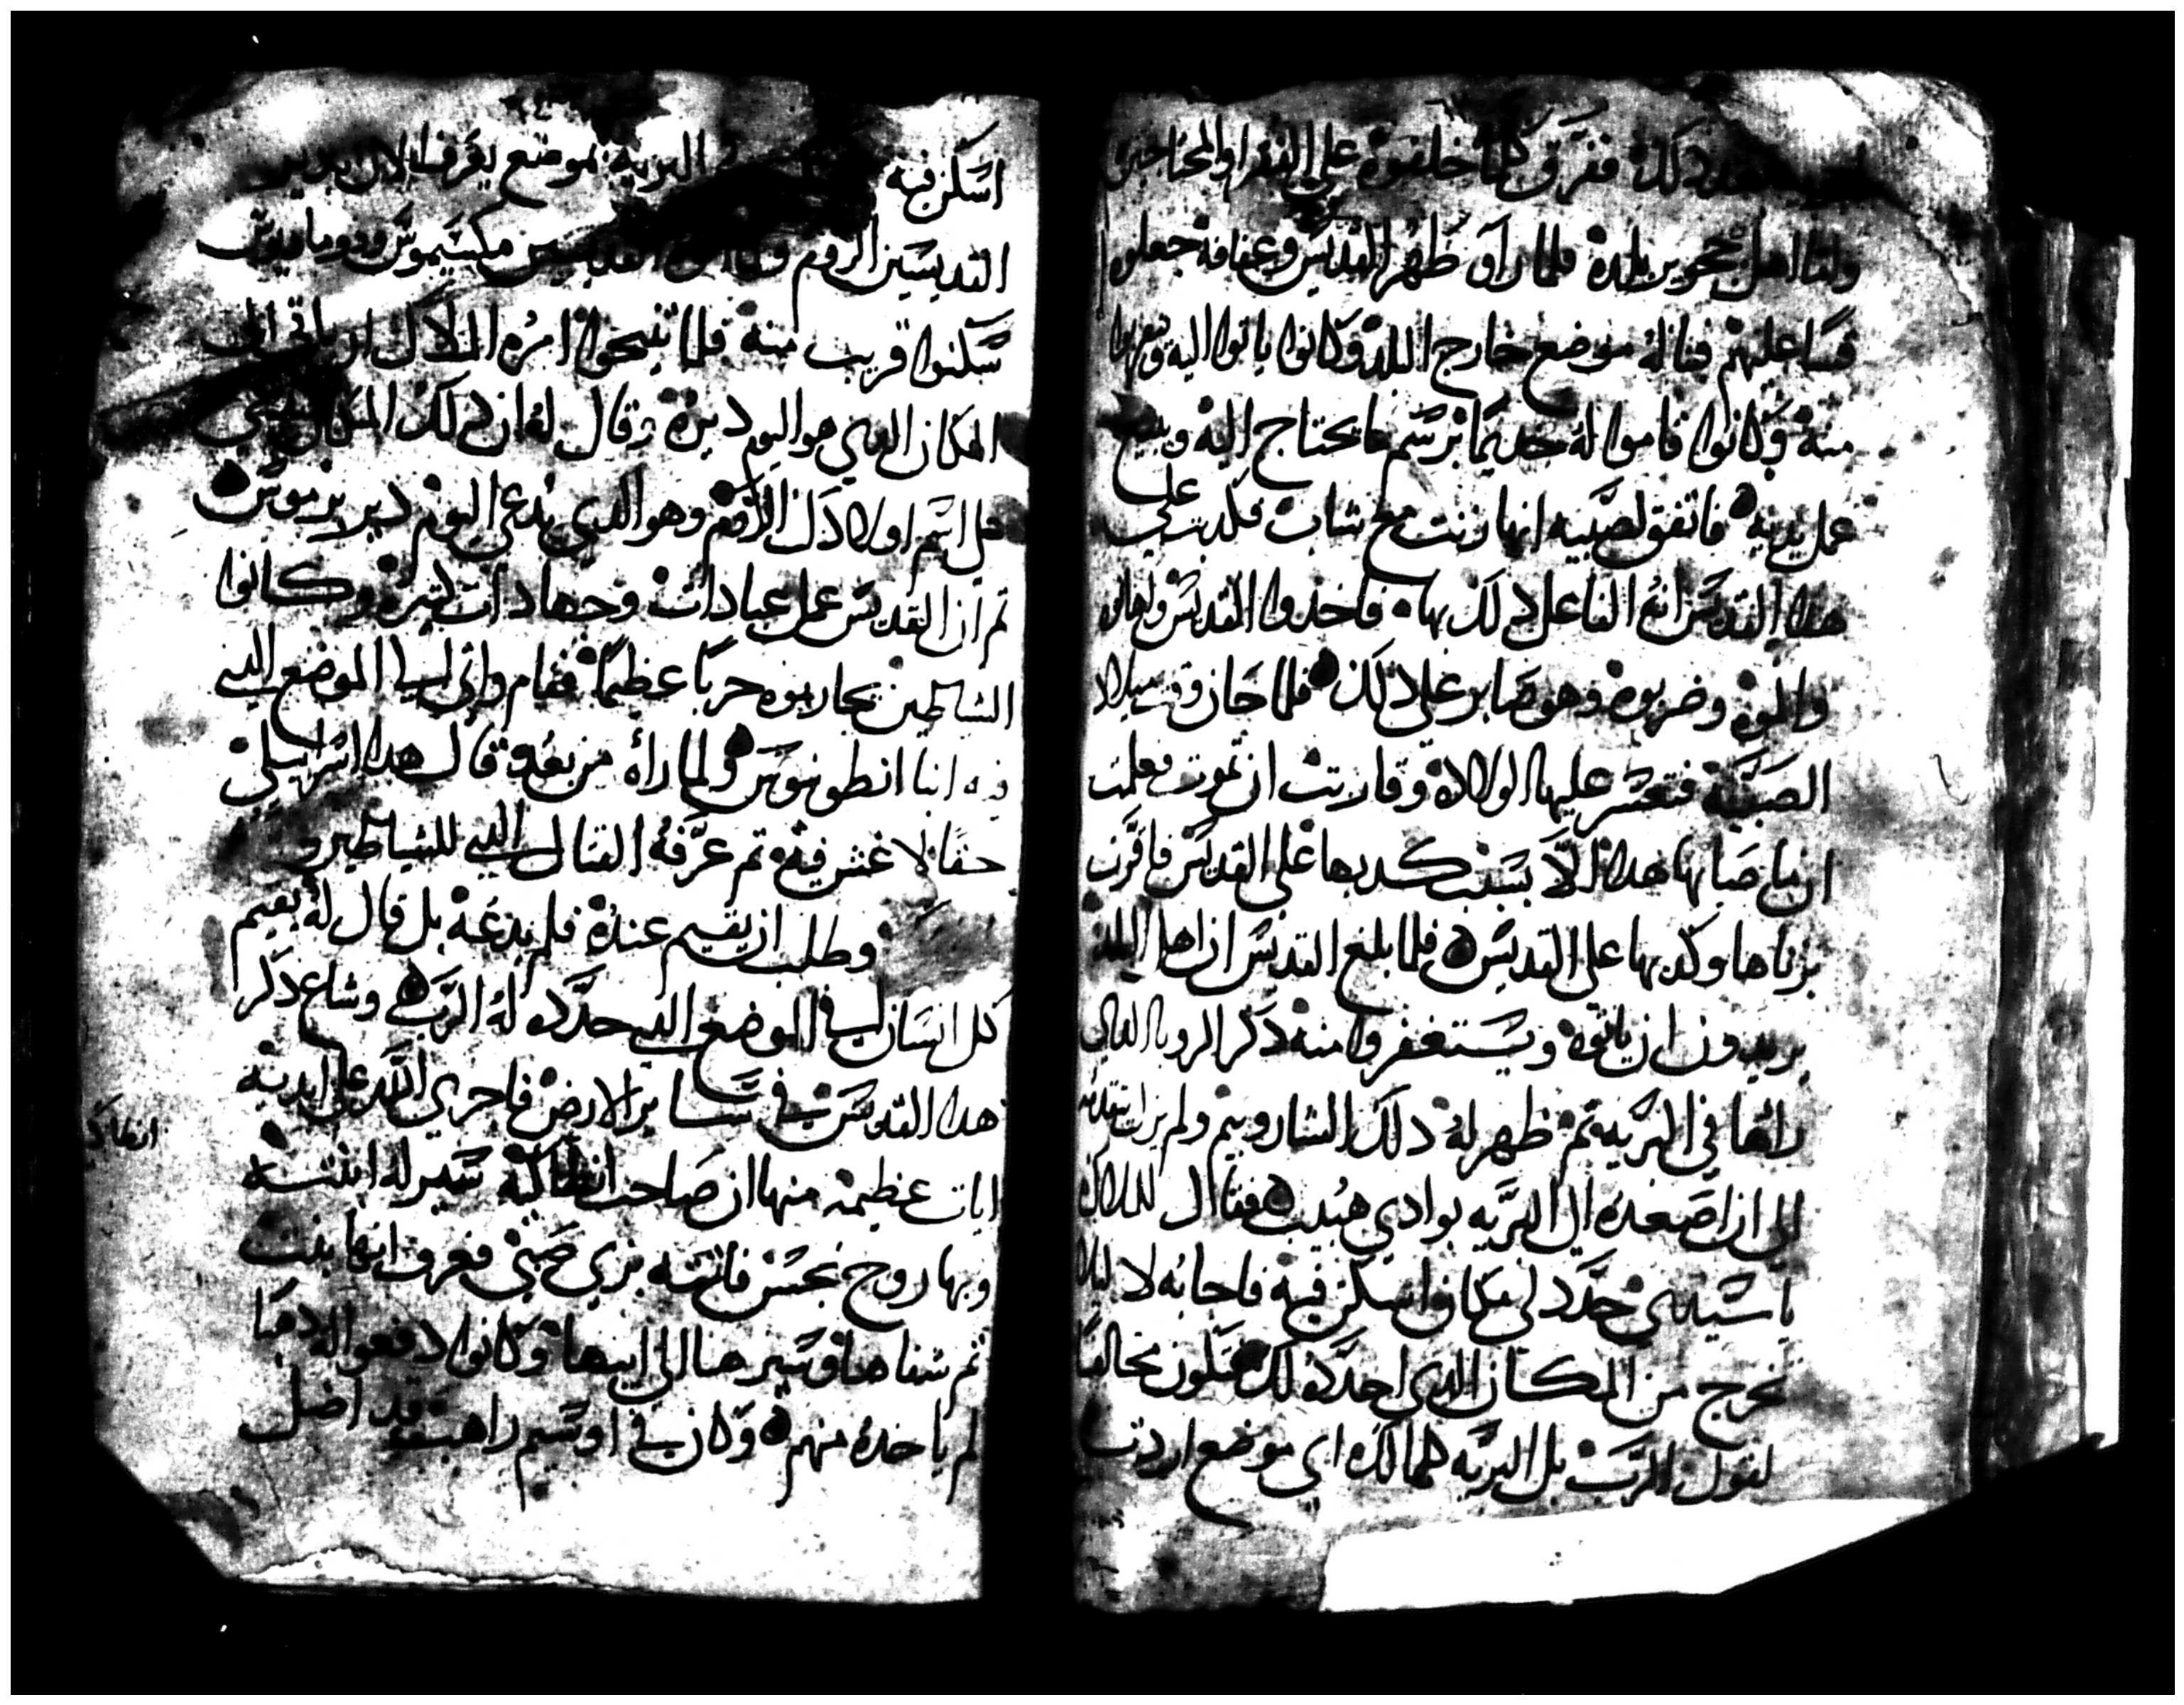 ذلك ففرق كلما خلفوه على الفقرا والمحتاجين
ولقا اهل نحوير بلده فلما راو ظهر القديس وعفافه جعلوه
قسا عليهم فناله موضع خارج البلد وكانوا ياتوا اليه
منه وكانوا قاموا له خديما برسم ما يحتاج اليه ويبيع
عمل يديه فاتفق لصبيه انها زنت مع شاب فكدبت على
هدا القديس انه الفاعل دلك بها فاخذوا القديس واهانوه
والموه وضربوه وهو صابر على دلك فلما حان وقت ميلاد
الصبية فتعسر عليها الولاده وقاربت ان تموت فعلمت
ان ما صابها هدا الا بسبب كدبها على القديس فاقرت
بزناها وكدبها على القديس فلما بلغ القديس ان اهل البلد
يريدون ان ياتوه ويستغفروا منه دكر الرويا التي
رائها في البريه تم ظهر له دلك الشاروبيم ولم يزل
الى ان اصعده الى البريه بوادي هبيب فقال للملاك
يا سيدي حدد لي مكانا اسكن فيه فاجابه لا ليلا
تخرج من المكان الدي احدده لك فتكون مخالفا
لقول الرب بل البريه كلها لك اي موضع اردت
اسكن فيه البريه بموضع يعرف الان بدير
القديسين الروم القديسين مكسيموس ودوماديوس
سكنوا قريب منه فلما تنيحوا امره الملاك ان ياتي الى
المكان الدي هو اليوم ديره وقال له ان دلك المكان
على اسم اولادك الروم وهو الدي يدعى اليوم دير برموس
تم ان القديس عمل عبادات وجهادات كثيره وكانوا
الشياطين يحاربوه حربا عظيما فقام واتى الى الموضع الدي
فيه انبا انطونيوس ولما راه من بعد قال هدا اسراييلي
حقا لا غش فيه تم عرفه القتال الدي للشياطين
وطلب ان يقيم عنده فلم يدعه بل قال له يقيم
كل انسان في الموضع الدي حدده له الرب وشاع دكر
هدا القديس في ساير الارض فاجرى الله على يديه
ايات عظيمه منها ان صاحب انطاكيه سير له ابنته
وبها روح نجس فاتته بزي صبي فعرف انها بنت
تم شفاها وسيرها الى ابيها وكانوا دفعوا له دهبا
لم ياخده منهم وكان في اوسيم راهب قد اضل
انطاكـ